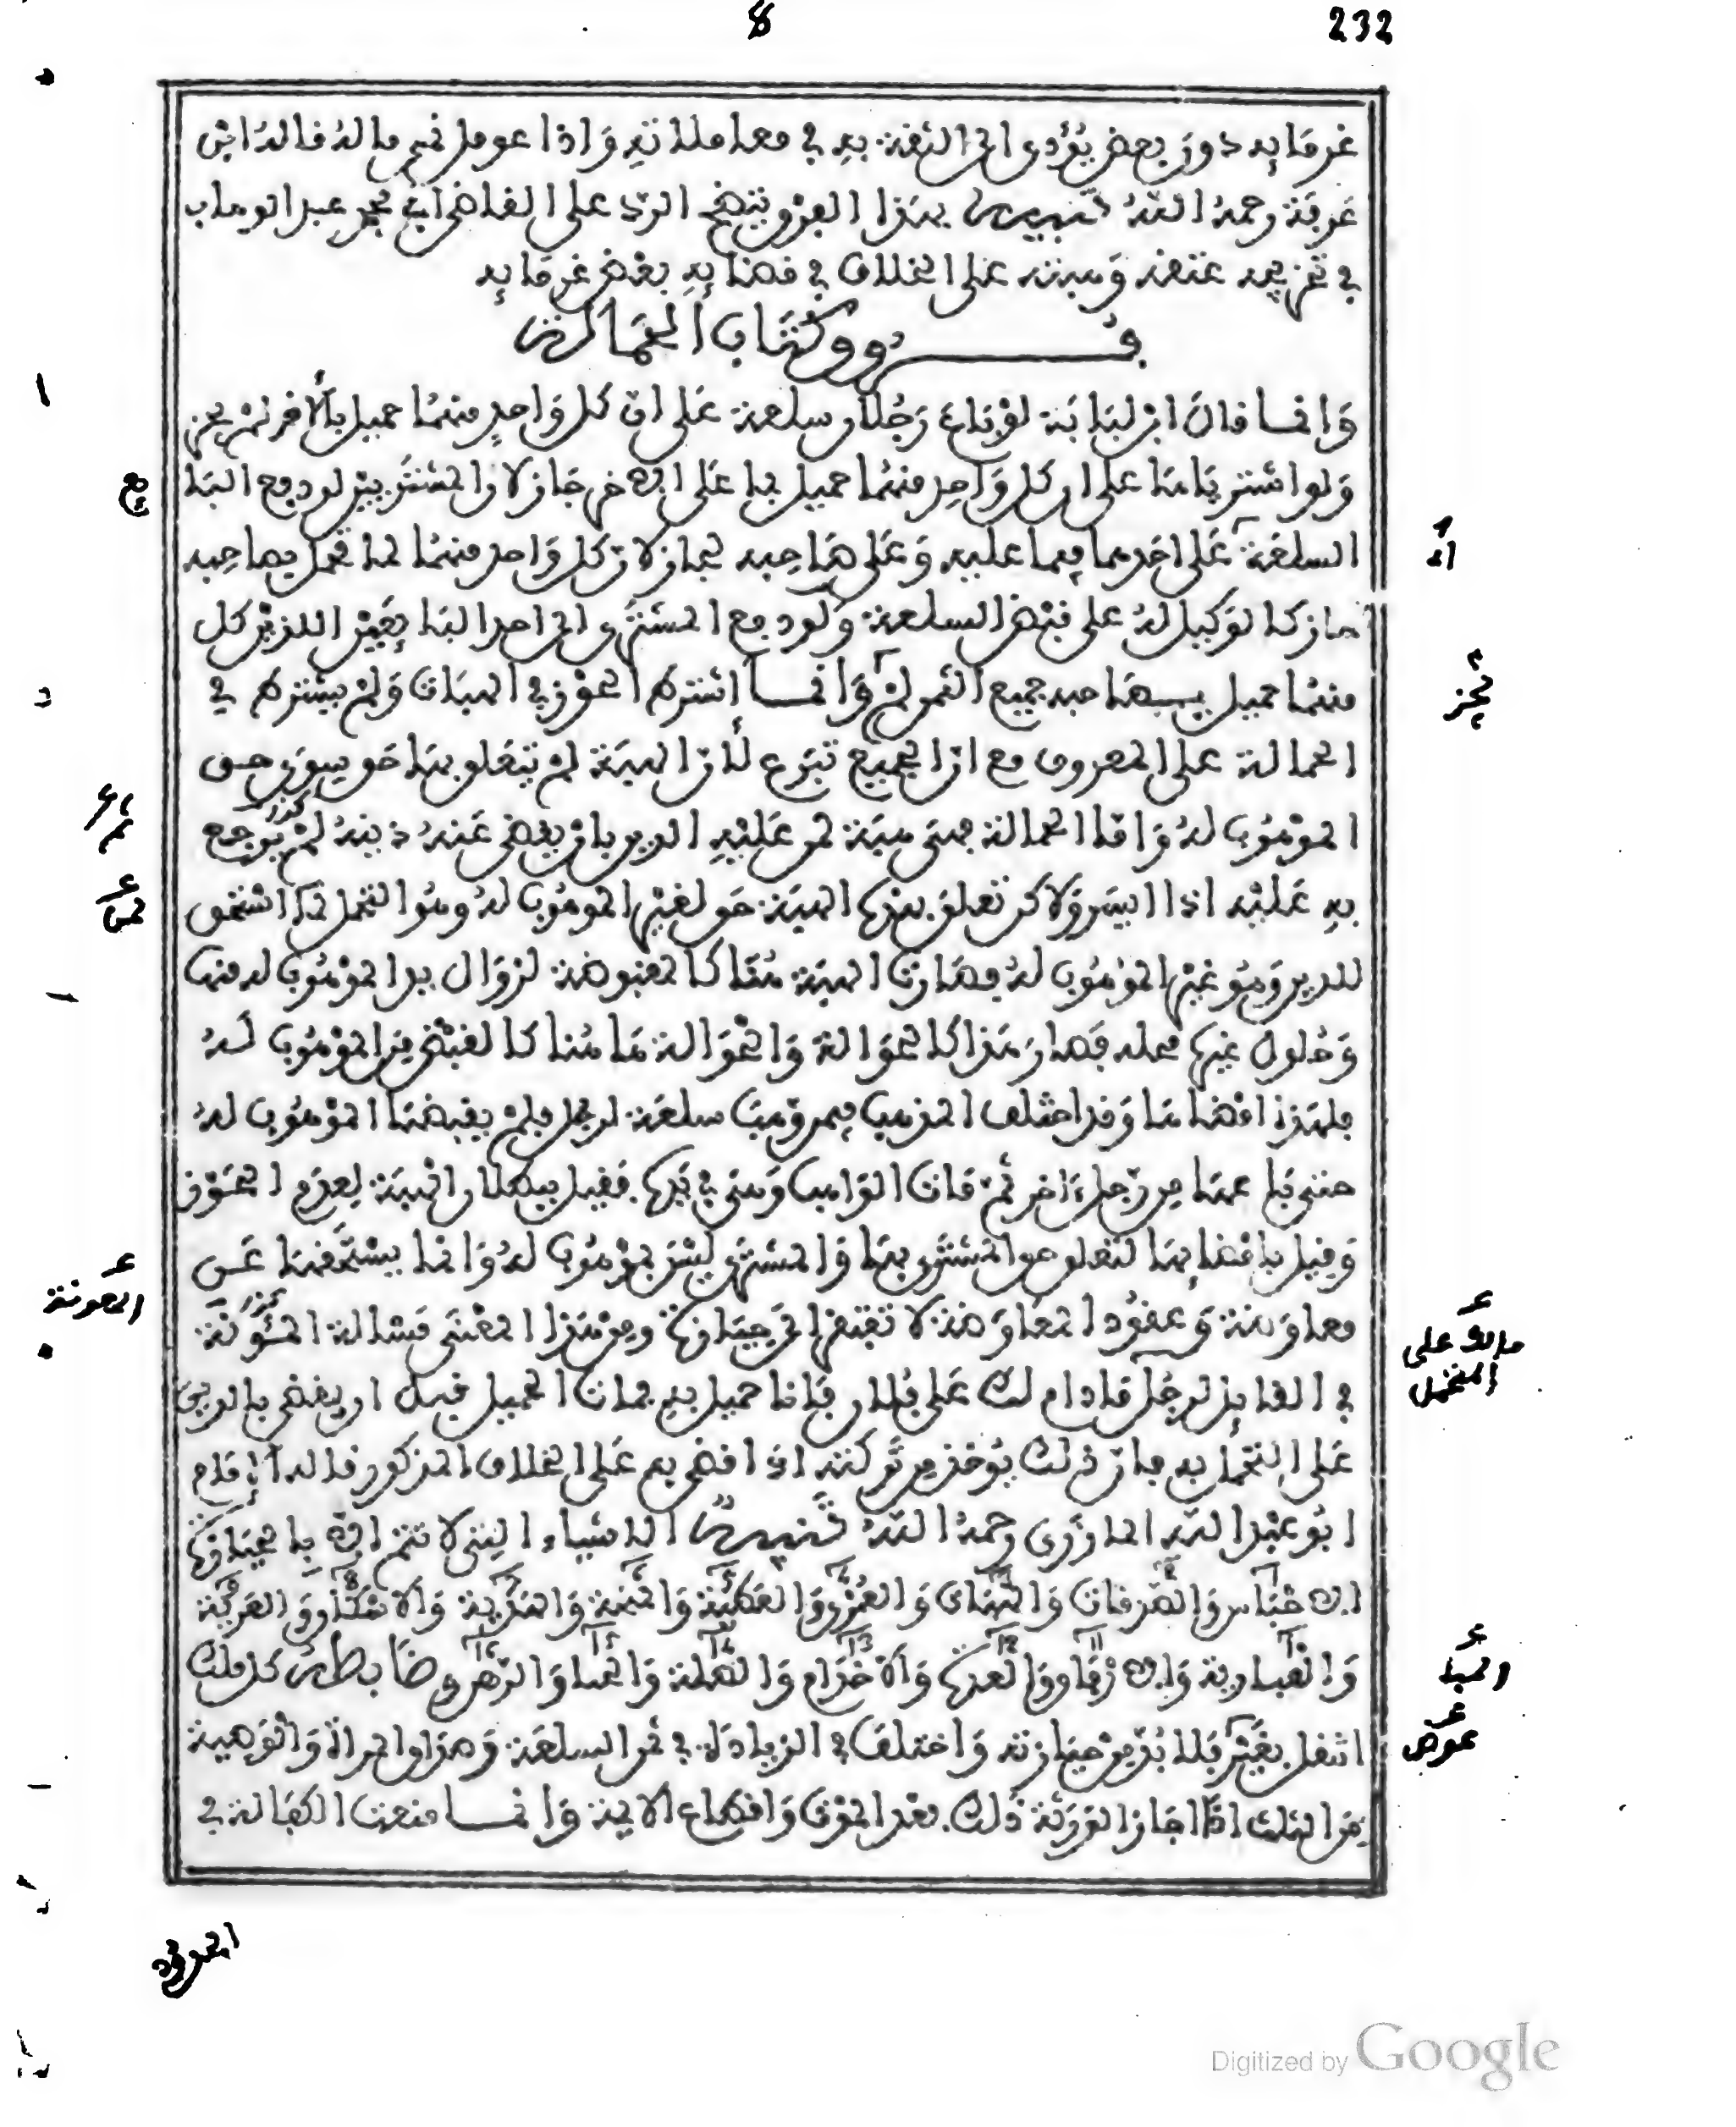 232
غرمايه دون بعض يؤدي الى الثقة به في معاملاته واذا عومل نمى ماله قاله ابن
عرفة رحمه الله تنبيه بهذا الفرق يتضح الرد على القاضي ابي محمد عبد الوهاب
في تخريجه عتقه وهبته على الخلاف في قضايه بعض غرمايه
فروق كتاب الحمالة
وانما قال ابن لبابة لو باعا رجلان سلعة على ان كل واحد منهما حميل بالاخر لم يجز
ولو اشترياها على ان كل واحد منهما حميل بها على الاخر جاز لان المشتريين لو دفع البا
يع
السلعة على احدهما فيما عليه وعلى صاحبه لجاز لان كل واحد منهما لما تحمل بصاحبه
جاز كالتوكيل له على قبض السلعة ولو دفع المشتري الى احد البايعين اللذين كل
منهما حميل بصاحبه جميع الثمن لم وانما اشترط الحوز في الهبات ولم يشترط في
يجز
الحمالة على المعروف مع ان الجميع تبرع لان الهبة لم يتعلق بها حق سوى حق
الموهوب له واما الحمالة فهي هبة لمن عليه الدين بان يقضي عنه دينه لم يرجع
به عليه اذا ايسر ولاكن تعلق بهذه الهبة حق لغير الموهوب له وهو المتحمل له المستحق
للدين وهو غير الموهوب له فصارت الهبة هنا كالمقبوضة لزوال يد الموهوب له منها
وحلول غيره محله فصار هذا كالحوالة والحوالة هاهنا كالقبض من الموهوب له
فلهذا امضاها وقد اختلف المذهب فيمن وهب سلعة لرجل فلم يقبضها الموهوب له
حتى باعها من رجل اخر ثم مات الواهب وهي في يده فقيل ببطلان الهبة لعدم الحوز
وقيل بامضايها لتعلق حق المشتري بها والمشتري ليس بموهوب له وانما يستحقها عن
معاوضة وعقود المعاوضة لا تفتقر الى حيازة ومن هذا المعنى مسالة المدونة
المعونة
في القايل لرجل ما دام لك على فلان فانا حميل به فمات الحميل قبل ان يقضى بالدين
على المتحمل به فان ذلك يوخذ من تركته اذا قضي به على الخلاف المذكور قاله الامام
مالك على
المتحمل
ابو عبد الله المازري رحمه الله تنبيه الاشياء التي لا تتم الا بالحيازة
الاحباس والصدقات والهبات والعمرى والعطية والنحلة والعرية والاسكان والعرية
والارفاق والعدة والاخدام والصلة والحبا والرهن ضابط كل ملك
الحبا
انتقل بغير فلا بد من حيازته واختلف في الزيادة في ثمن السلعة وصداق المراة والوصية
عوض
من الثلث اذا اجاز الورثة ذلك بعد الموت واقطاع الامام وانما منعت الكفالة في
الحدود
Digitized by Google